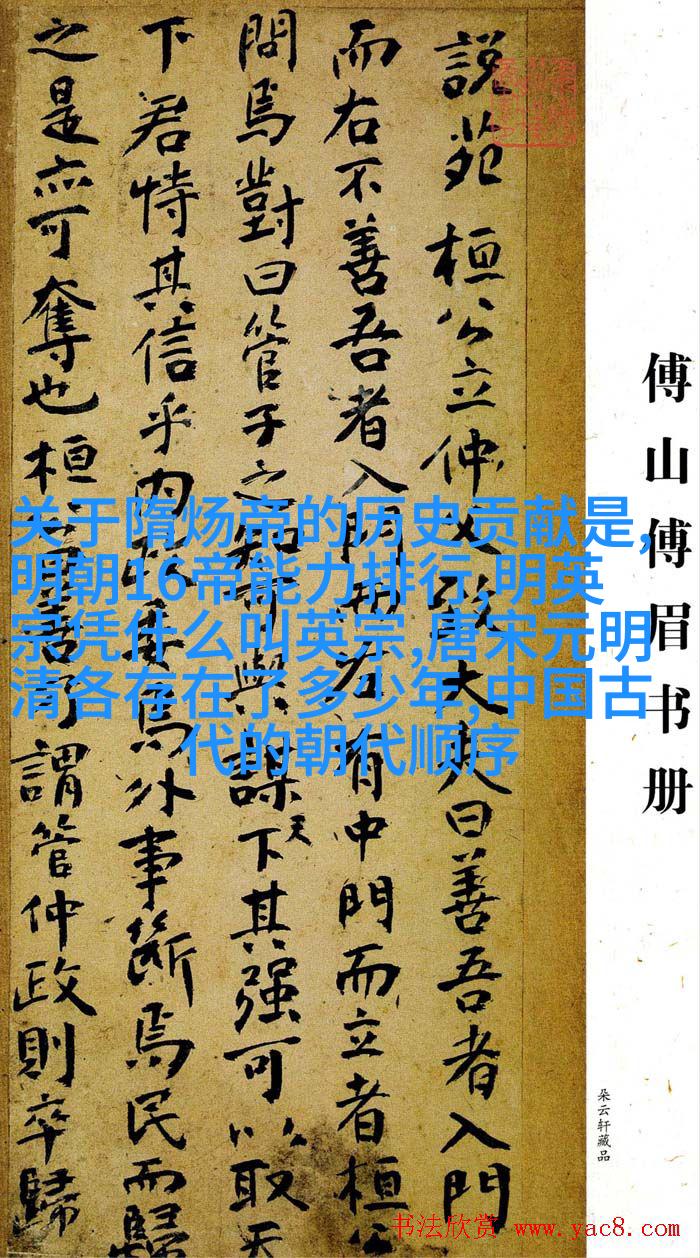 説苑 桓公立仲父致大夫曰善吾者入門
而右不善吾者入門而左有中門而立者桓公
問焉對曰管子之知可與謀天下其强可以取天
下君恃其信乎内政委焉外事斷焉民而歸
之是亦可奪也桓謂管仲政則卒歸
傅山傅眉书册
朵云轩藏品
关于隋炀帝的历史贡献是,
明朝16帝能力排行,明英
宗凭什么叫英宗,唐宋元明
清各存在了多少年,中国古
代的朝代顺序
书法欣赏 www.yac8.com